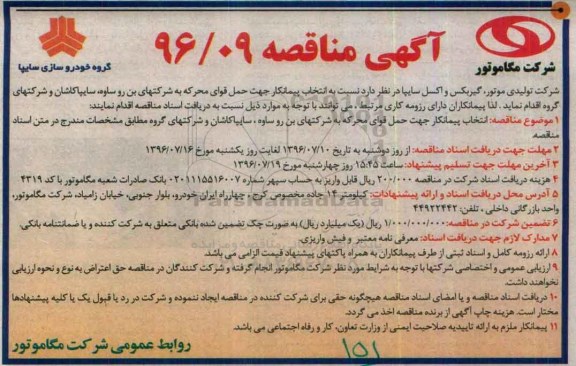 آگهی مناقصه ۹۶/۰۹
شرکت مگاموتور
گروه خودرو سازی سایپا
شرکت تولیدی موتور، گیربکس و اکسل سایپا در نظر دارد نسبت به انتخاب پیمانکار جهت حمل قوای محرکه به شرکتهای بن رو ساوه، سایپاکاشان و شرکتهای
گروه اقدام نماید . لذا پیمانکاران دارای رزومه کاری مرتبط ، می توانند با توجه به موارد ذیل نسبت به دریافت اسناد مناقصه اقدام نمایند:
۱ موضوع مناقصه: انتخاب پیمانکار جهت حمل قوای محرکه به شرکتهای بن رو ساوه ، سایپاکاشان و شرکتهای گروه مطابق مشخصات مندرج در متن اسناد
مناقصه
۲ مهلت جهت دریافت اسناد مناقصه: از روز دوشنبه به تاریخ ۱۳۹۶/۰۷/۱۰ لغایت روز یکشنبه مورخ ۱۳۹۶/۰۷/۱۶
۳ آخرین مهلت جهت تسلیم پیشنهاد: ساعت ۱۵:۴۵ روز چهارشنبه مورخ ۱۳۹۶/۰۷/۱۹
۴ هزینه دریافت اسناد شرکت در مناقصه ۲۰۰/۰۰۰ ریال قابل واریز به حساب سپهر شماره ۰۲۰۱۱۱۵۵۱۶۰۰۷ بانک صادرات شعبه مگاموتور با کد ۴۳۱۹
۵ آدرس محل دریافت اسناد و ارائه پیشنهادات: کیلومتر ۱۴ جاده مخصوص کرج، چهارراه ایران خودرو، بلوار جنوبی، خیابان زامیاد، شرکت مگاموتور،
واحد بازرگانی داخلی ، تلفن: ۴۴۹۲۲۴۴۲
۶ تضمین شرکت در مناقصه: ۱/۰۰۰/۰۰۰/۰۰۰ ریال (یک میلیارد ریال) به صورت چک تضمین شده بانکی متعلق به شرکت کننده و یا ضمانتنامه بانکی.
۷ مدارک لازم جهت دریافت اسناد: معرفی نامه معتبر و فیش واریزی.
۸ ارائه رزومه کامل و اسناد ثبتی از طرف پیمانکاران به همراه پاکتهای پیشنهاد قیمت الزامی می باشد.
۹ ارزیابی عمومی و اختصاصی شرکتها با توجه به شرایط مورد نظر شرکت مگاموتور انجام گرفته و شرکت کنندگان در مناقصه حق اعتراض به نوع و نحوه ارزیابی
نخواهند داشت.
۱۰ دریافت اسناد مناقصه و یا امضای اسناد مناقصه هیچگونه حقی برای شرکت کننده در مناقصه ایجاد ننموده و شرکت در رد یا قبول یک یا کلیه پیشنهادها
مختار است. هزینه چاپ آگهی از برنده مناقصه اخذ می گردد.
۱۱ پیمانکار ملزم به ارائه تاییدیه صلاحیت ایمنی از وزارت تعاون، کار و رفاه اجتماعی می باشد.
روابط عمومی شرکت مگاموتور